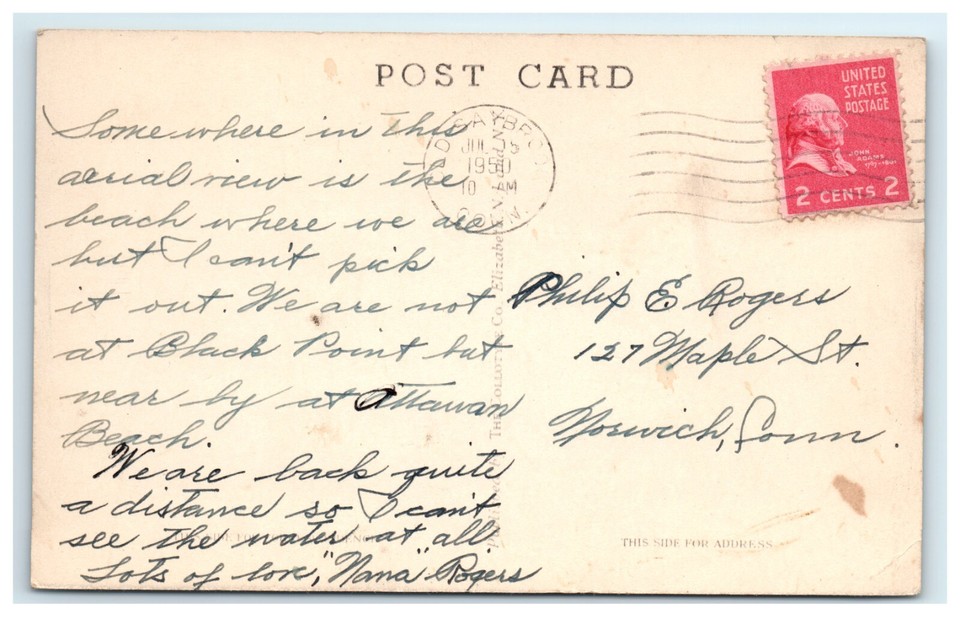 POST CARD
Some where in this
aerial view is the
beach where we are
but I can't pick
it out. We are not
at Black Point but
near by at Attawan
Beach.
We are back quite
a distance so I can't
see the water at all
Lots of love, "Nana" Rogers
1950
10 AM
UNITED
STATES
POSTAGE
JOHN
ADAMS
2 CENTS 2
Philip E Rogers
127 Maple St.
Norwich, Conn.
THIS SIDE FOR ADDRESS